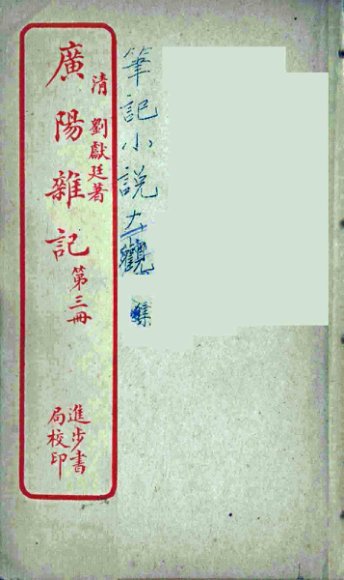 筆記小説大觀
清 劉獻廷著
廣陽雜記 第三冊
進步書
局校印